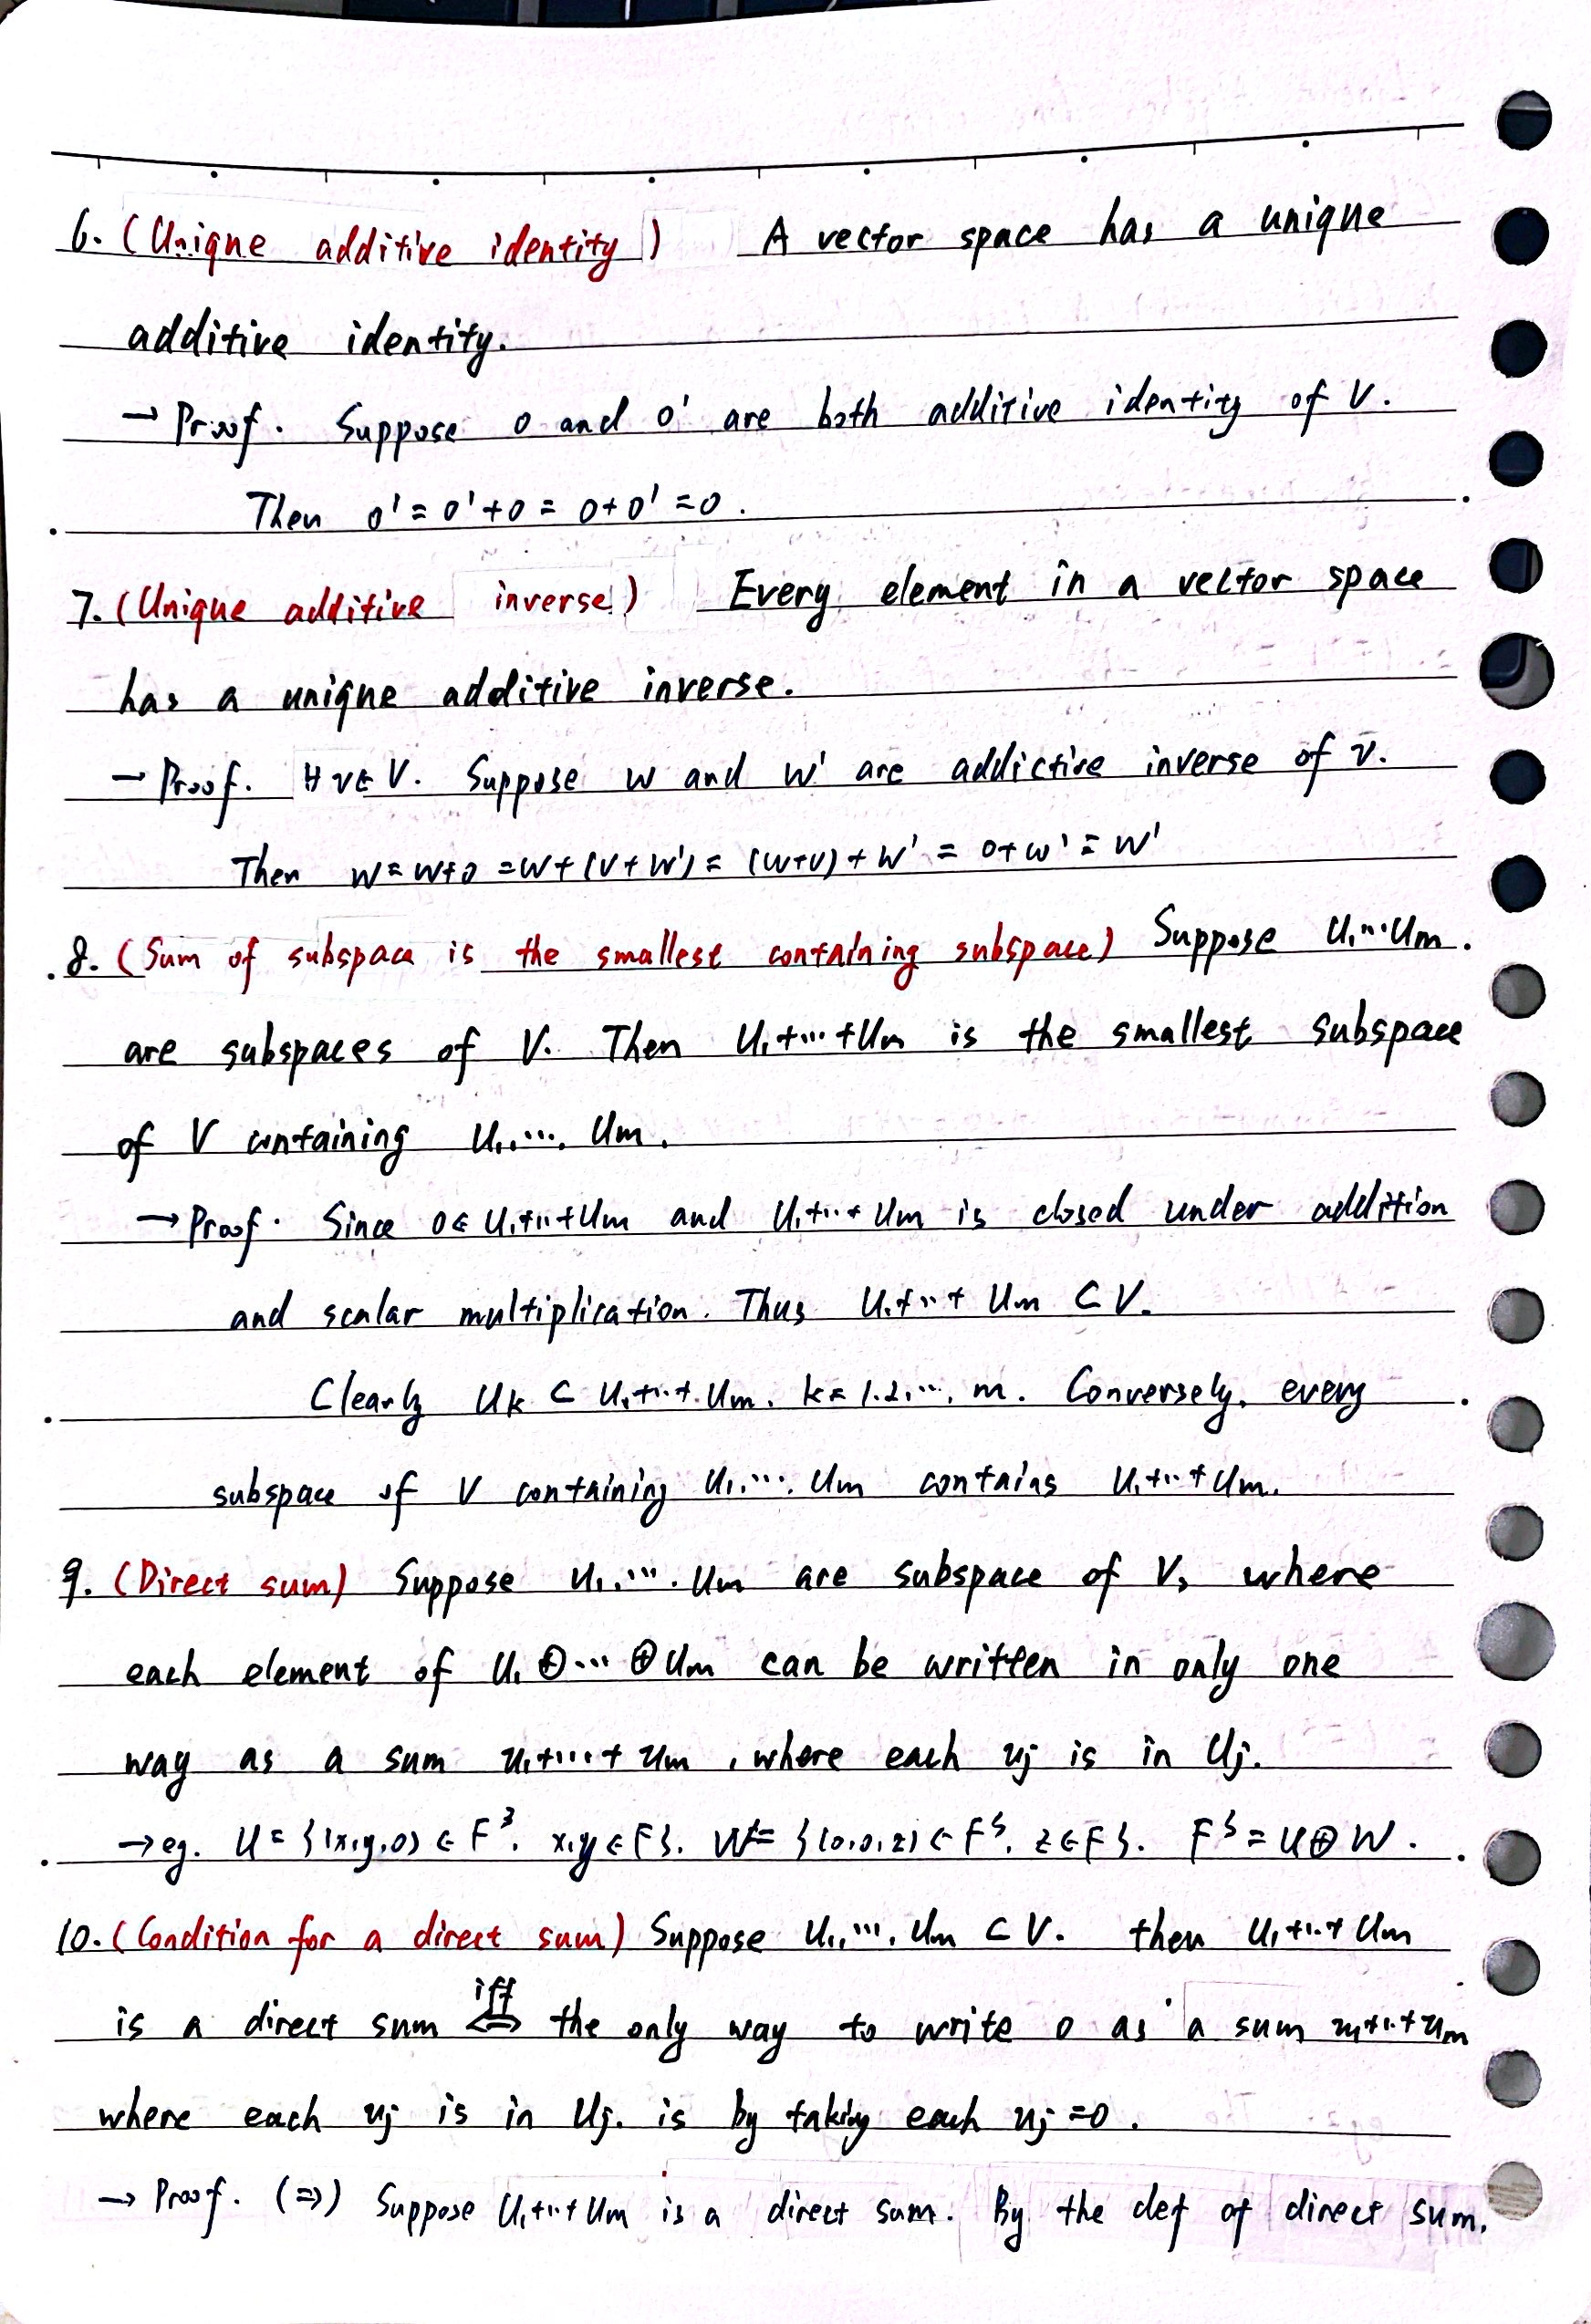 6. (Unique additive identity) A vector space has a unique
additive identity.
→ Proof. Suppose 0 and 0' are both additive identity of V.
Then 0' = 0'+0 = 0+0' = 0.
7. (Unique additive inverse) Every element in a vector space
has a unique additive inverse.
→ Proof. ∀ v∈V. Suppose w and w' are addictive inverse of v.
Then w = w+0 = w+(v+w') = (w+v)+w' = 0+w' = w'
8. (Sum of subspace is the smallest containing subspace) Suppose U₁...Um
are subspaces of V. Then U₁+...+Um is the smallest subspace
of V containing U₁,..., Um.
→ Proof. Since 0∈ U₁+..+Um and U₁+..+ Um is closed under addition
and scalar multiplication. Thus U₁+..+ Um ⊂ V.
Clearly Uk ⊂ U₁+..+ Um, k=1.2,..., m. Conversely, every
subspace of V containing U₁,..., Um contains U₁+..+Um.
9. (Direct sum) Suppose U₁,..., Um are subspace of V, where
each element of U₁ ⊕... ⊕ Um can be written in only one
way as a sum u₁+...+ um, where each uj is in Uj.
→ eg. U = {(x,y,0) ∈ F³, x,y∈F}. W = {(0,0,z) ∈ F³, z∈F}. F³ = U⊕W.
10. (Condition for a direct sum) Suppose U₁,..., Um ⊂ V. then U₁+..+ Um
is a direct sum iff ⇔ the only way to write 0 as a sum u₁+..+um
where each uj is in Uj. is by taking each uj =0.
→ Proof. (⇒) Suppose U₁+..+Um is a direct sum. By the def of direct sum,